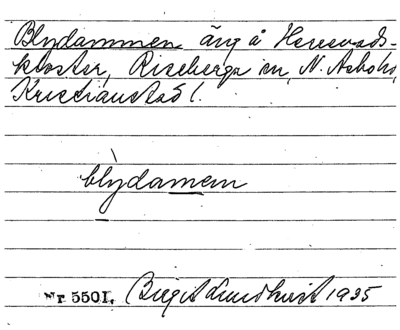 Blydammen äng å Herrevads-
kloster, Riseberga sn, N. Åsbohd,
Kristianstad l.
blỳdamem
Nr. 5501. Birgit Lundkvist 1935